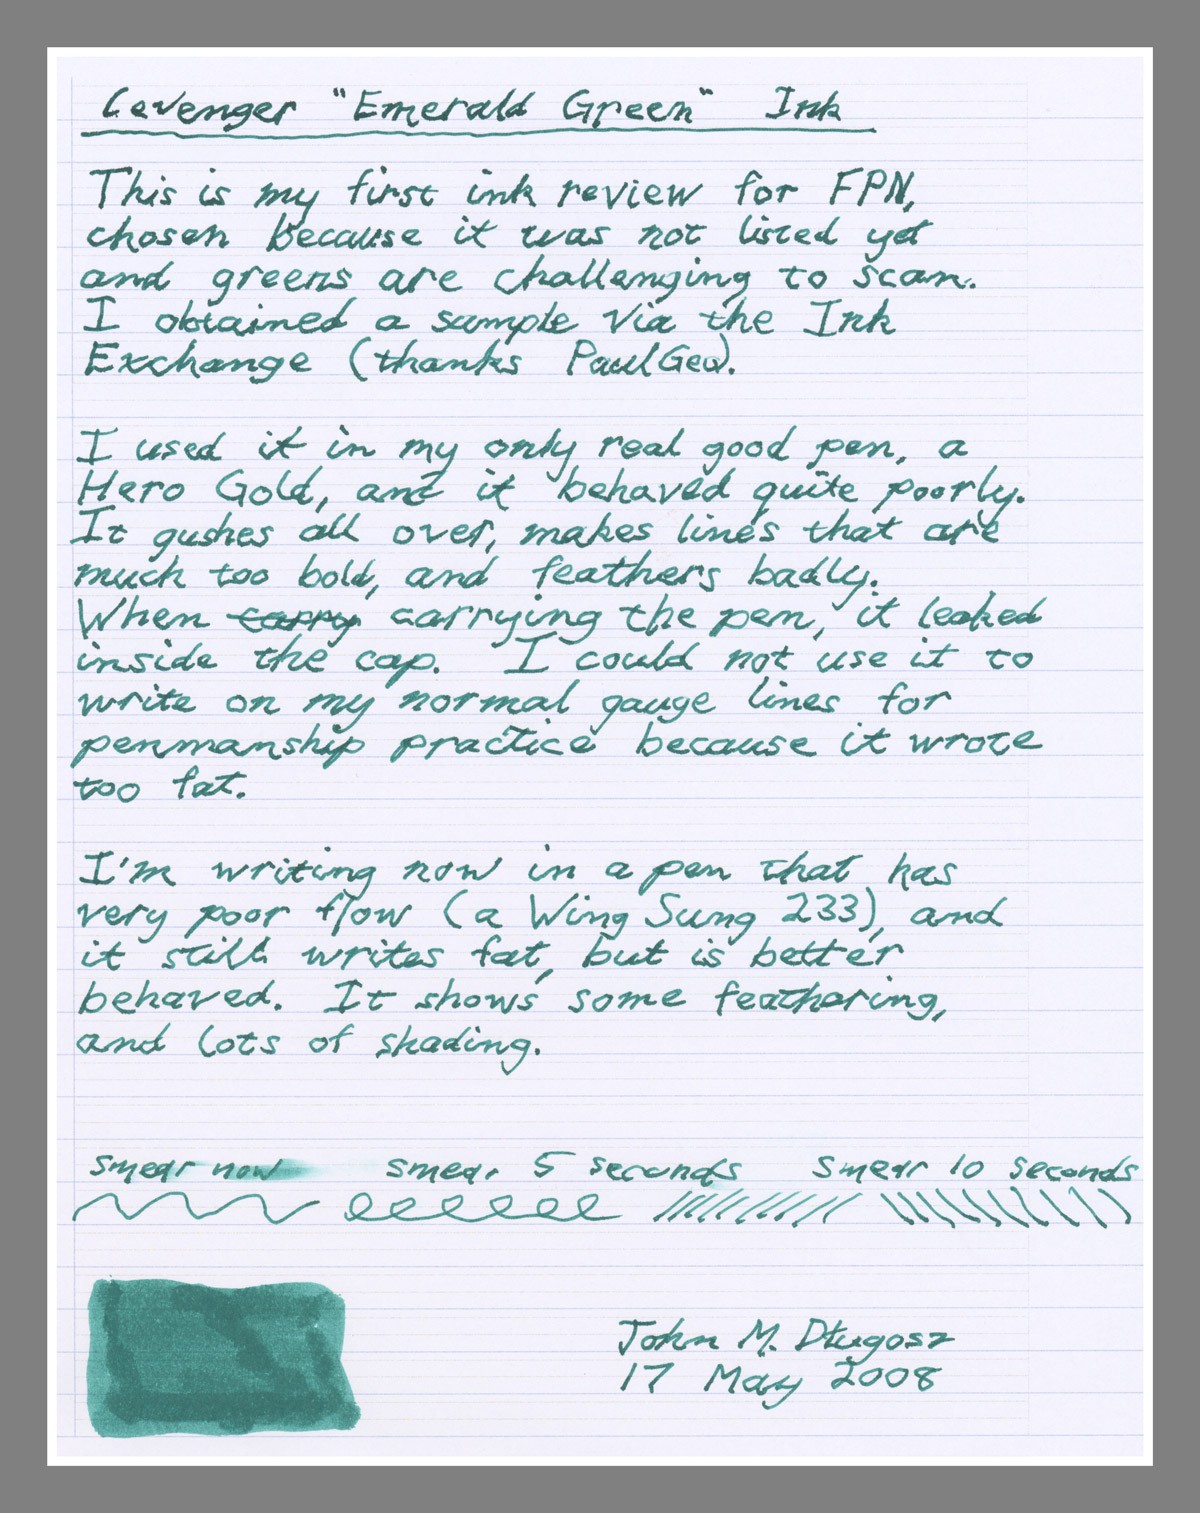 Levenger "Emerald Green" Ink
This is my first ink review for FPN,
chosen because it was not listed yet
and greens are challenging to scan.
I obtained a sample via the Ink
Exchange (thanks PaulGeo).
I used it in my only real good pen, a
Hero Gold, and it behaved quite poorly.
It gushes all over, makes lines that are
much too bold, and feathers badly.
When carry carrying the pen, it leaked
inside the cap. I could not use it to
write on my normal gauge lines for
penmanship practice because it wrote
too fat.
I'm writing now in a pen that has
very poor flow (a Wing Sung 233), and
it still writes fat, but is better
behaved. It shows some feathering,
and lots of shading.
smear now smear 5 seconds smear 10 seconds
John M. Długosz
17 May 2008